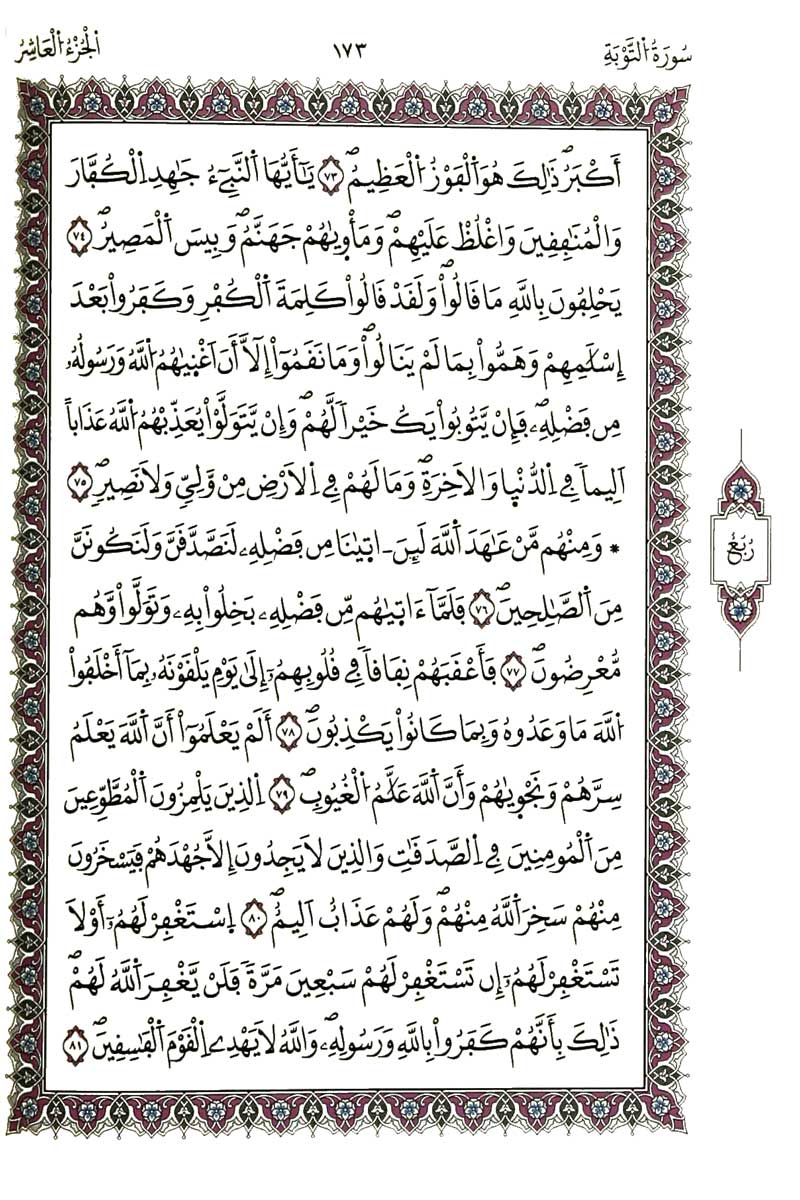 سُورَةُ اُلتَّوْبَةِ
١٧٣
اَلْجُزْءُ اُلْعَاشِرُ
أَكْبَرُۖ ذَٰلِكَ هُوَ اَ۬لْفَوْزُ اُ۬لْعَظِيمُۖ ٧٣ يَٰٓأَيُّهَا اَ۬لنَّبِےٓءُ جَٰهِدِ اِ۬لْكُفَّارَ
وَالْمُنَٰفِقِينَ وَاغْلُظْ عَلَيْهِمْۖ وَمَأْو۪يٰهُمْ جَهَنَّمُۖ وَبِيسَ اَ۬لْمَصِيرُۖ ٧٤
يَحْلِفُونَ بِاللَّهِ مَا قَالُواْۖ وَلَقَدْ قَالُواْ كَلِمَةَ اَ۬لْكُفْرِ وَكَفَرُواْ بَعْدَ
إِسْلَٰمِهِمْ وَهَمُّواْ بِمَا لَمْ يَنَالُواْۖ وَمَا نَقَمُوٓاْ إِلَّآ أَنَ اَغْن۪يٰهُمُ اُ۬للَّهُ وَرَسُولُهُۥ
مِن فَضْلِهِۦۖ فَإِنْ يَّتُوبُواْ يَكُ خَيْراٗ لَّهُمْۖ وَإِنْ يَّتَوَلَّوْاْ يُعَذِّبْهُمُ اُ۬للَّهُ عَذَاباً
اَلِيماٗ فِے اِ۬لدُّنْي۪ا وَالَاخِرَةِۖ وَمَا لَهُمْ فِے اِ۬لَارْضِ مِنْ وَّلِيّٖ وَلَا نَصِيرٖۖ ٧٥
* وَمِنْهُم مَّنْ عَٰهَدَ اَ۬للَّهَ لَئِنَ اٰت۪يٰنَا مِن فَضْلِهِۦ لَنَصَّدَّقَنَّ وَلَنَكُونَنَّ
مِنَ اَ۬لصَّٰلِحِينَۖ ٧٦ فَلَمَّآ ءَات۪يٰهُم مِّن فَضْلِهِۦ بَخِلُواْ بِهِۦ وَتَوَلَّواْ وَّهُم
مُّعْرِضُونَۖ ٧٧ فَأَعْقَبَهُمْ نِفَاقاٗ فِے قُلُوبِهِمُۥٓ إِلَىٰ يَوْمِ يَلْقَوْنَهُۥ بِمَآ أَخْلَفُواْ
اُ۬للَّهَ مَا وَعَدُوهُ وَبِمَا كَانُواْ يَكْذِبُونَۖ ٧٨ أَلَمْ يَعْلَمُوٓاْ أَنَّ اَ۬للَّهَ يَعْلَمُ
سِرَّهُمْ وَنَجْو۪يٰهُمْ وَأَنَّ اَ۬للَّهَ عَلَّٰمُ اُ۬لْغُيُوبِۖ ٧٩ اِ۬لذِينَ يَلْمِزُونَ اَ۬لْمُطَّوِّعِينَ
مِنَ اَ۬لْمُومِنِينَ فِے اِ۬لصَّدَقَٰتِ وَالذِينَ لَا يَجِدُونَ إِلَّا جُهْدَهُمْ فَيَسْخَرُونَ
مِنْهُمْ سَخِرَ اَ۬للَّهُ مِنْهُمْۖ وَلَهُمْ عَذَابٌ اَلِيمٌۖ ٨٠ اِ۪سْتَغْفِرْ لَهُمُۥٓ أَوْ لَا
تَسْتَغْفِرْ لَهُمُۥٓ إِن تَسْتَغْفِرْ لَهُمْ سَبْعِينَ مَرَّةٗ فَلَنْ يَّغْفِرَ اَ۬للَّهُ لَهُمْۖ
ذَٰلِكَ بِأَنَّهُمْ كَفَرُواْ بِاللَّهِ وَرَسُولِهِۦۖ وَاللَّهُ لَا يَهْدِے اِ۬لْقَوْمَ اَ۬لْفَٰسِقِينَۖ ٨١
رُبُعُ